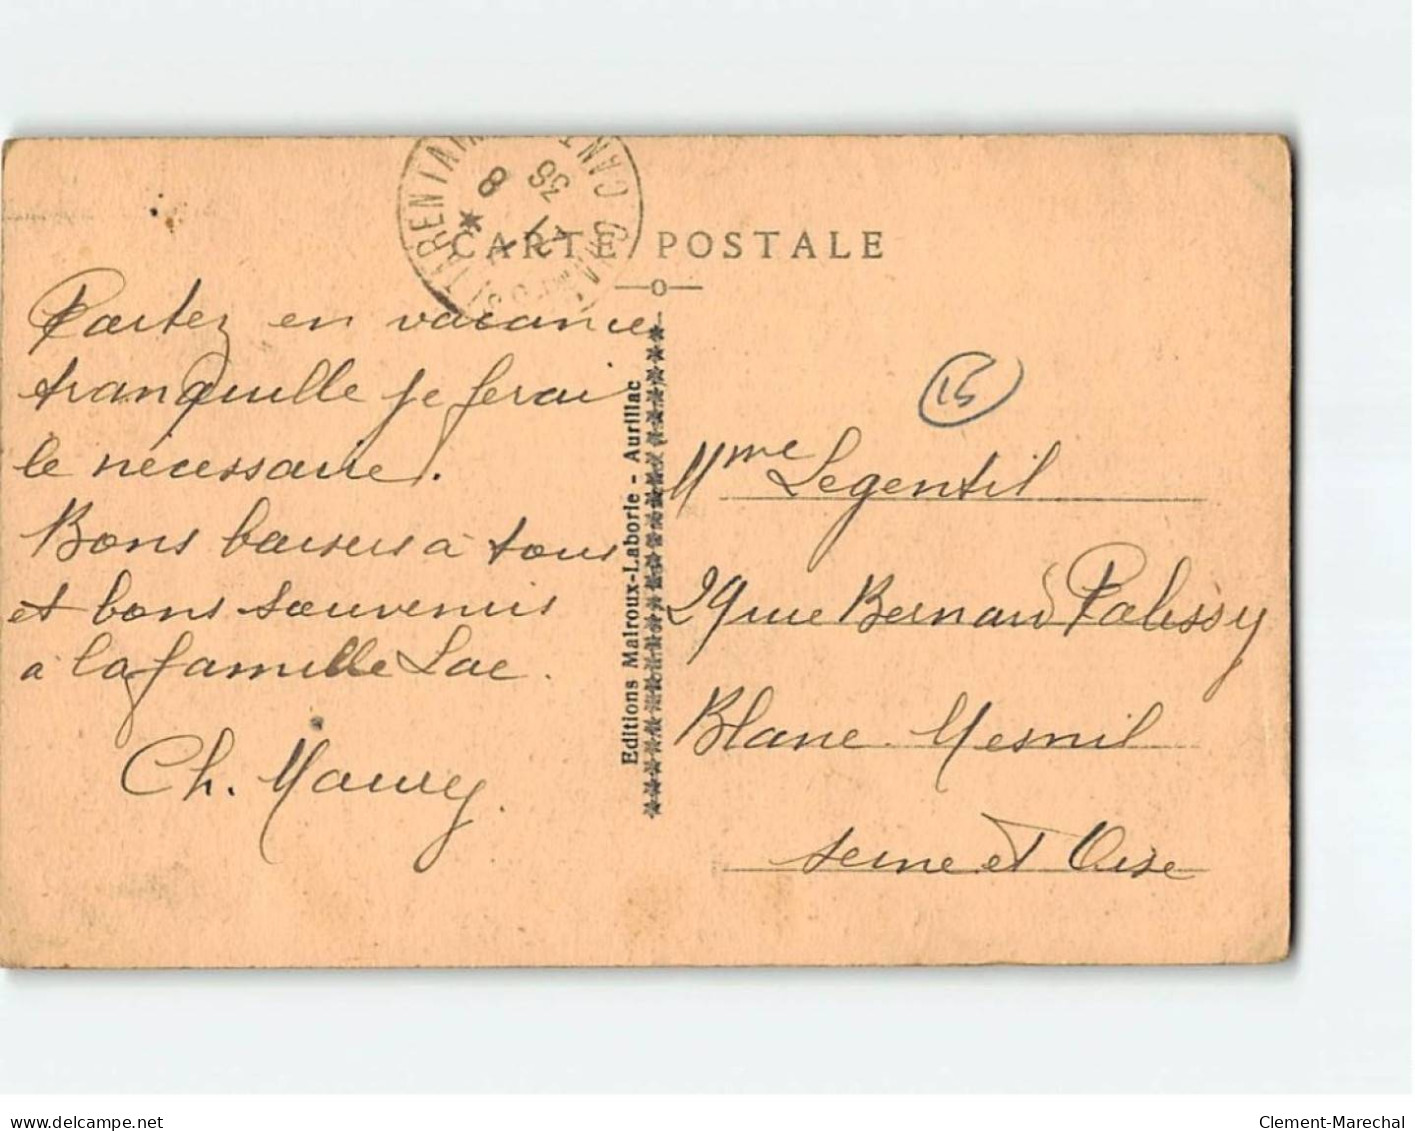 CARTE POSTALE
Partez en vacances
tranquille je ferai
le nécessaire.
Bons baisers à tous
et bons souvenirs
à la famille Lac.
Ch. Maury.
Editions Malroux-Laborie - Aurillac
15
Mme Legentil
29 rue Bernard Palissy
Blanc Mesnil
Seine et Oise
delcampe.net
Clement-Marechal